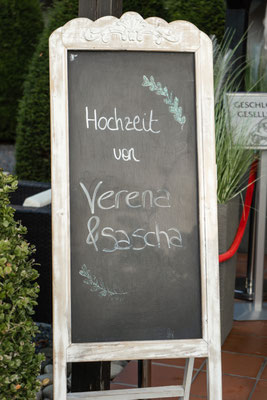 Hochzeit
von
Verena
& Sascha
GESCHL
GESEL